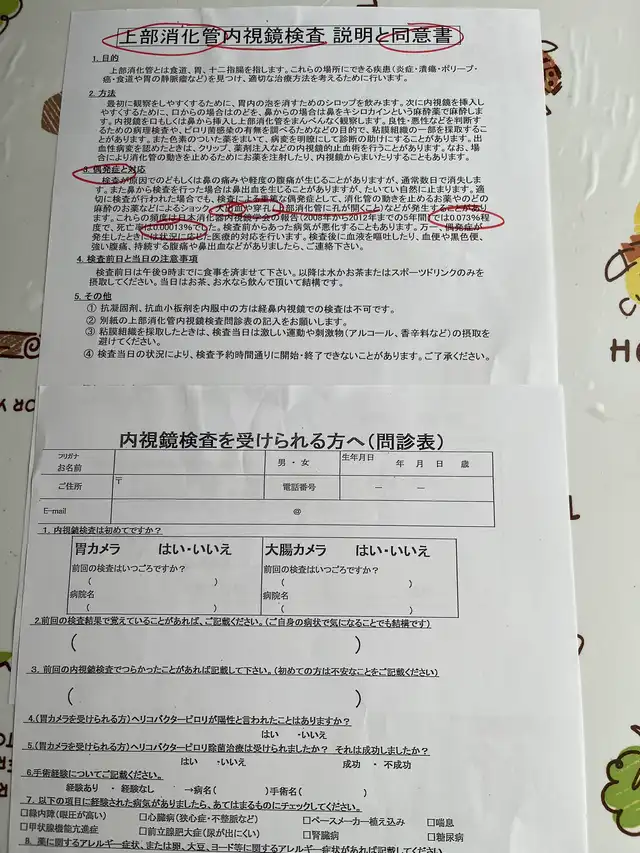 上部消化管内視鏡検査 説明と同意書
1. 目的
上部消化管とは食道、胃、十二指腸を指します。これらの場所にできる疾患(炎症・潰瘍・ポリープ・
癌・食道や胃の静脈瘤など)を見つけ、適切な治療方法を考えるために行います。
2. 方法
最初に観察をしやすくするために、胃内の泡を消すためのシロップを飲みます。次に内視鏡を挿入し
やすくするために、口からの場合はのどを、鼻からの場合は鼻をキシロカインという麻酔薬で麻酔しま
す。内視鏡を口もしくは鼻から挿入し上部消化管をまんべんなく観察します。良性・悪性などを判断す
るための病理検査や、ピロリ菌感染の有無を調べるためなどの目的で、粘膜組織の一部を採取するこ
とがあります。また色素のついた薬をまいて、病変を明瞭にして診断の助けにすることがあります。出
血性病変を認めたときは、クリップ、薬剤注入などの内視鏡的止血術を行うことがあります。なお、場
合により消化管の動きを止めるためにお薬を注射したり、内視鏡からまいたりすることもあります。
3. 偶発症と対応
検査が原因でのどもしくは鼻の痛みや軽度の腹痛が生じることがありますが、通常数日で消失しま
す。また鼻から検査を行った場合は鼻出血を生じることがありますが、たいてい自然に止まります。適
切に検査が行われた場合でも、検査による重篤な偶発症として、消化管の動きを止めるお薬やのど
の麻酔のお薬などによるショック、大出血や穿孔(上部消化管に孔が開くこと)などが発生することがあり
ます。これらの頻度は日本消化器内視鏡学会の報告(2008年から2012年までの5年間)では0.073%程
度で、死亡率は0.00013%でした。検査前からあった病気が悪化することもあります。万一、偶発症が
発生したときには状況に応じた医療的対応を行います。検査後に血液を嘔吐したり、血便や黒色便、
強い腹痛、持続する腹痛や鼻出血などがありましたら、ご連絡下さい。
4. 検査前日と当日の注意事項
検査前日は午後9時までに食事を済ませて下さい。以降は水かお茶またはスポーツドリンクのみを
摂取してください。当日はお茶、お水なら飲んで頂いて結構です。
5. その他
① 抗凝固剤、抗血小板剤を内服中の方は経鼻内視鏡での検査は不可です。
② 別紙の上部消化管内視鏡検査問診表の記入をお願いします。
③ 粘膜組織を採取したときは、検査当日は激しい運動や刺激物(アルコール、香辛料など)の摂取を
避けてください。
④ 検査当日の状況により、検査予約時間通りに開始・終了できないことがあります。ご了承ください。
内視鏡検査を受けられる方へ(問診表)
フリガナ
お名前
男・女
生年月日
年 月 日 歳
ご住所
〒
電話番号
― ―
E-mail
@
1. 内視鏡検査は初めてですか?
胃カメラ はい・いいえ
大腸カメラ はい・いいえ
前回の検査はいつごろですか?
前回の検査はいつごろですか?
( )
( )
病院名
病院名
( )
( )
2.前回の検査結果で覚えていることがあれば、ご記載ください。(ご自身の病状で気になることでも結構です)
( )
3. 前回の内視鏡検査でつらかったことがあれば記載して下さい。(初めての方は不安なことをご記載ください)
( )
4.(胃カメラを受けられる方)ヘリコバクターピロリが陽性と言われたことはありますか?
はい ・いいえ
5.(胃カメラを受けられる方)ヘリコバクターピロリ除菌治療は受けられましたか? それは成功しましたか?
はい ・いいえ 成功 ・ 不成功
6.手術経験についてご記載ください。
経験あり ・ 経験なし →病名( )手術名( )
7. 以下の項目に経験された病気がありましたら、あてはまるものにチェックしてください。
□緑内障(眼圧が高い) □心臓病(狭心症・不整脈など) □ペースメーカー植え込み □喘息
□甲状腺機能亢進症 □前立腺肥大症(尿が出にくい) □腎臓病 □糖尿病
8. 薬に関するアレルギー症状、または卵、大豆、ヨード等に関するアレルギー症状があれば記載してください。
HO